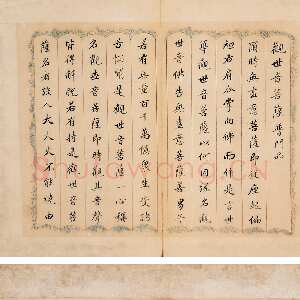 觀世音菩薩普門品
爾時無盡意菩薩即從座起偏
袒右肩合掌向佛而作是言世
尊觀世音菩薩以何因緣名觀
世音佛告無盡意菩薩善男子
若有無量百千萬億眾生受諸
苦惱聞是觀世音菩薩一心稱
名觀世音菩薩即時觀其音聲
皆得解脫若有持是觀世音菩
薩名者設入大火火不能燒由